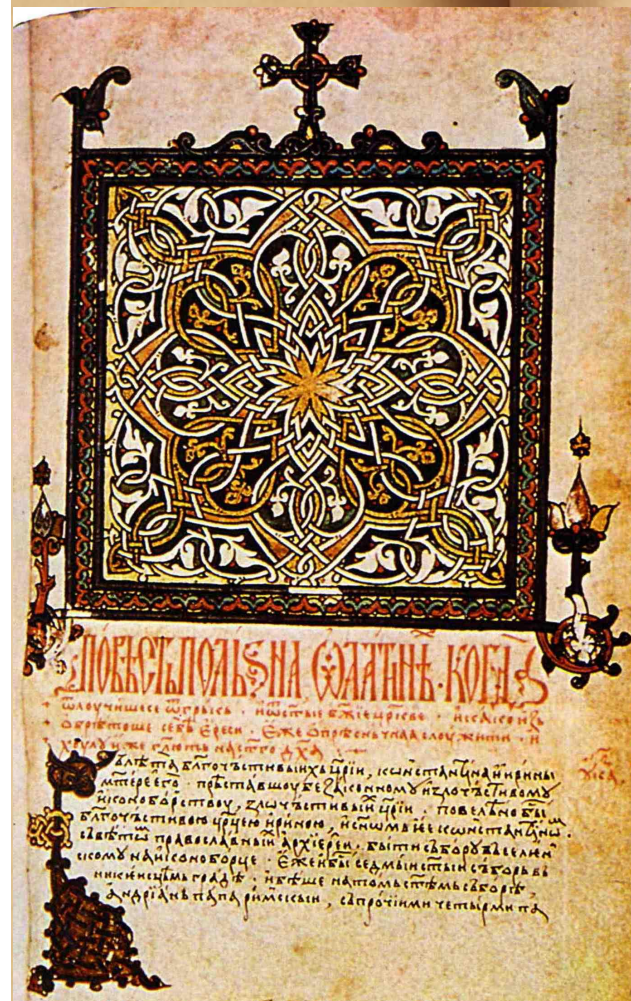 ПОВѢСТЬ ПОЛЬЅНА Ѡ ЛАТИНѢ · КОГДА
ѿлоучишесе ѿ грькь · и ст҃ые бж҃їе цр҃кве ·
обрѣтоше себѣ ереси · еже опрѣсньчнаа слоужити · и
хоулоу иже гл҃ють на ст҃го дх҃а
лѣта бл҃гочьстивыихь цр҃їи, кѡнстанті́на и ирины
мт҃ере его · прѣставшоу безаконномоу и злочьстивомоу
иконоборствоу, злочьстивыи цр҃їи · повелѣно бы
бл҃гочьстивою цр҃цею ириною, и сн҃ѡмь ее кѡнстантінѡм
съвѣтѡ православныи архїереи · быти събороу въселен
скомоу на иконоборце · еже и бы седмыи ст҃ыи съборь вь
никеисцѣмь градѣ · и бѣше на томь ст҃ѣмь съборѣ,
андрїань папа римьскыи, съ прочїими четырми па